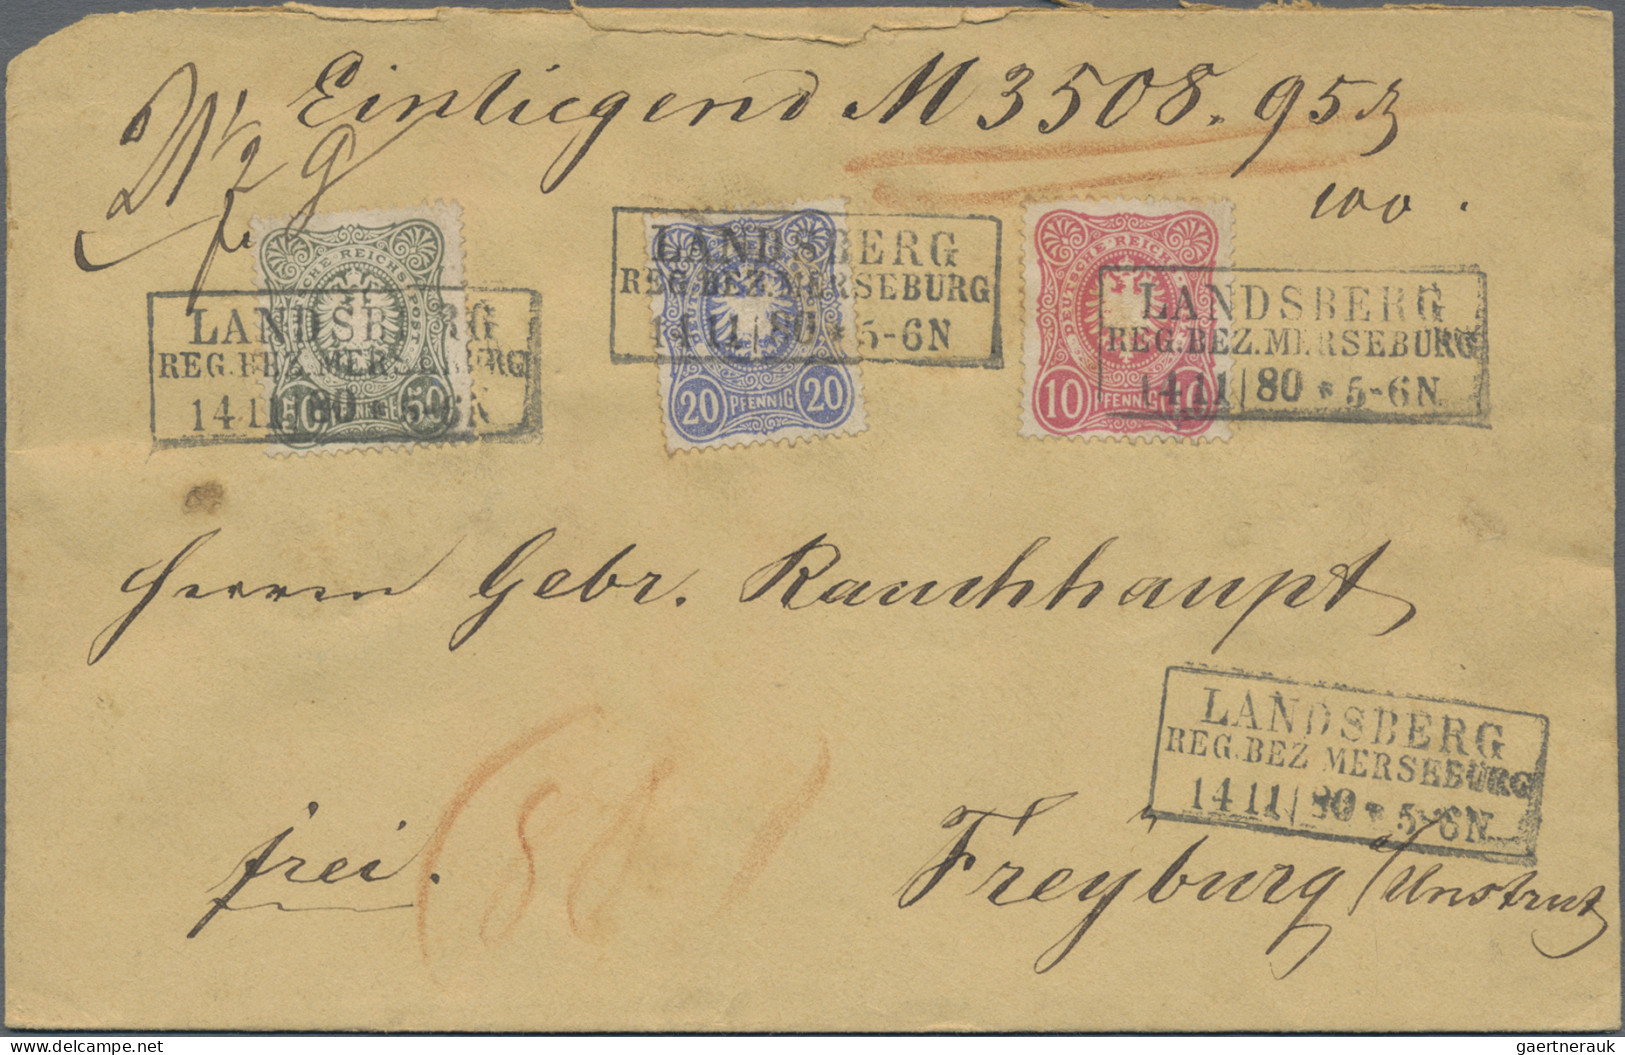 Einliegend M 3508. 95
100.
DEUTSCHE REICHS-POST
50 PFENNIGE 50
LANDSBERG
REG. BEZ. MERSEBURG
14 11 / 80 * 5-6N
DEUTSCHE REICHS-POST
20 PFENNIG 20
LANDSBERG
REG. BEZ. MERSEBURG
14 11 / 80 * 5-6N
DEUTSCHE REICHS-POST
10 PFENNIG 10
LANDSBERG
REG. BEZ. MERSEBURG
14 11 / 80 * 5-6N
Herren Gebr. Rauchhaupt
LANDSBERG
REG. BEZ MERSEBURG
14 11 / 80 * 5-6N
frei.
Freyburg a/Unstrut
www.delcampe.net
gaertnerauk